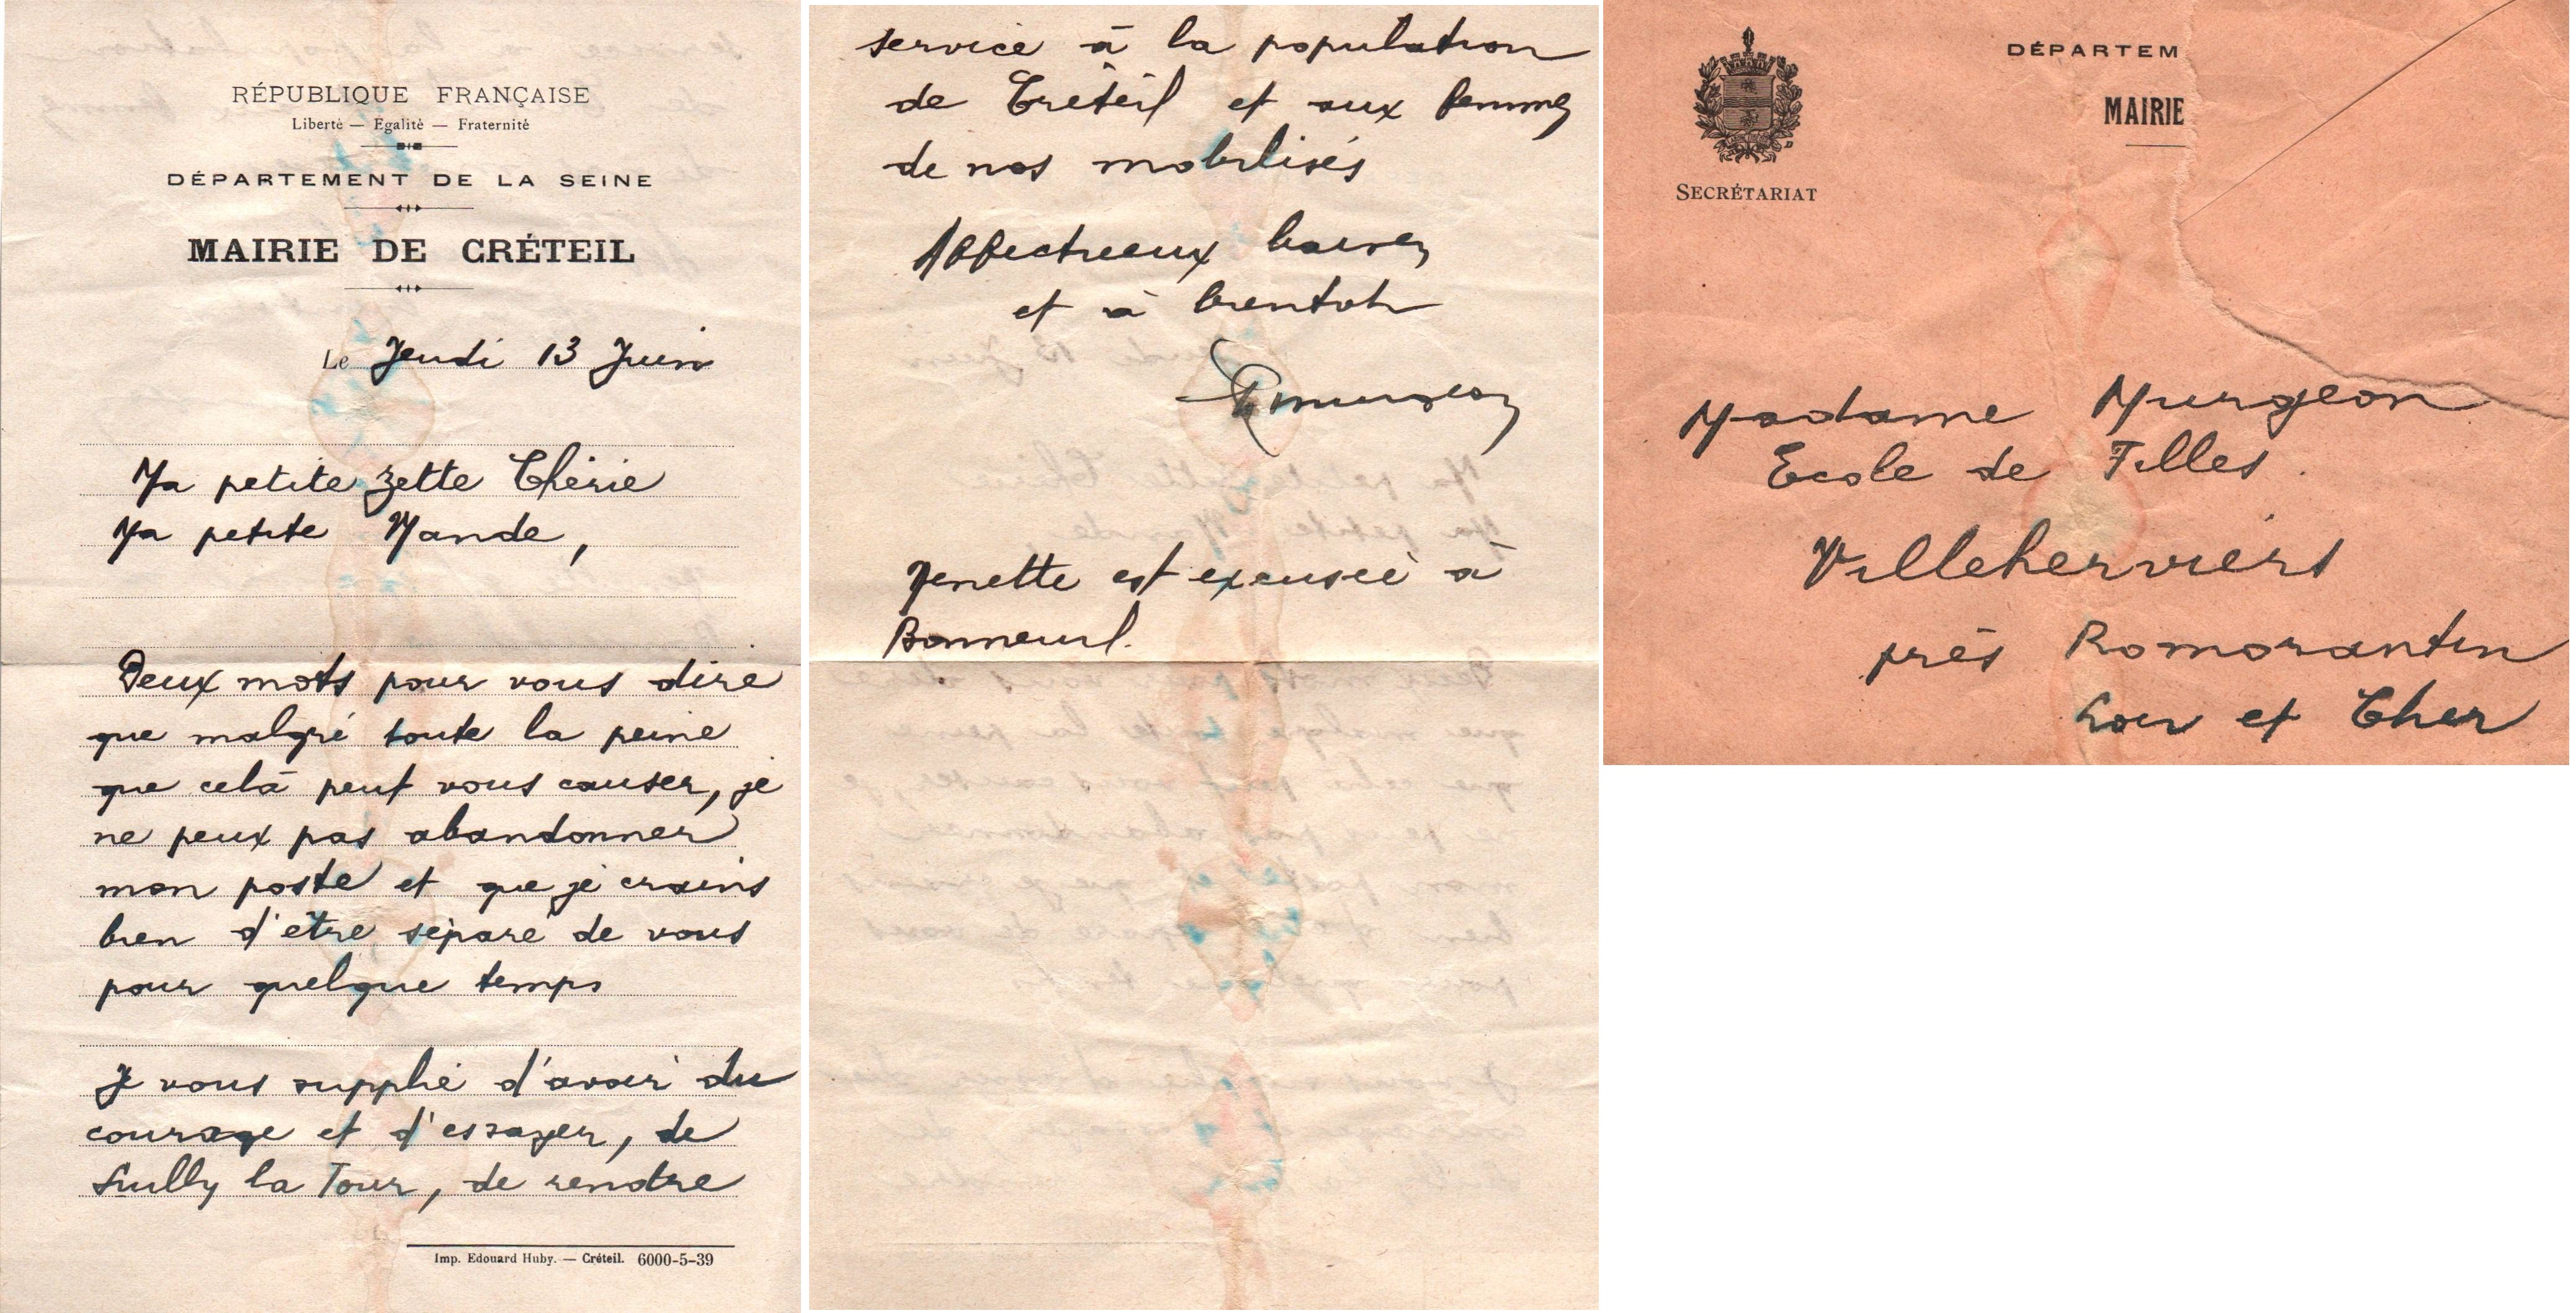 RÉPUBLIQUE FRANÇAISE
Liberté — Egalité — Fraternité
DÉPARTEMENT DE LA SEINE
MAIRIE DE CRÉTEIL
Le Jeudi 13 Juin
Ma petite Zette Chérie
Ma petite Mande,
Deux mots pour vous dire
que malgré toute la peine
que celà peut vous causer, je
ne peux pas abandonner
mon poste et que je crains
bien d'être séparé de vous
pour quelque temps
Je vous supplie d'avoir du
courage et d'essayer, de
Sully la Tour, de rendre
Imp. Edouard Huby. — Créteil. 6000-5-39
service à la population
de Créteil et aux femmes
de nos mobilisés
Affectueux baisers
et à bientôt
Jenette est excusée à
Bonneuil.
SECRÉTARIAT
DÉPARTEM
MAIRIE
Madame Murgeon
Ecole de Filles.
Villeherviers
près Romorantin
Loir et Cher